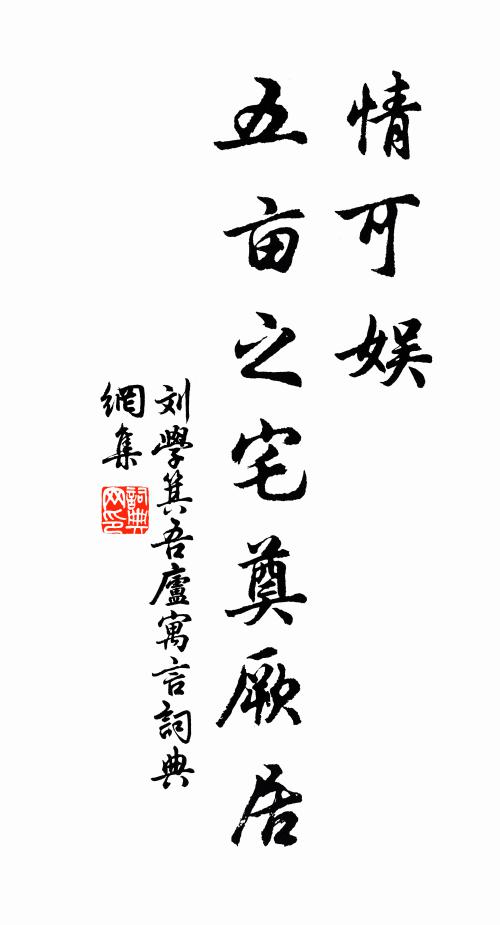 情可娱
五亩之宅奠厥居
刘學箕吾廬寓言詞典
網集
詞典
网印